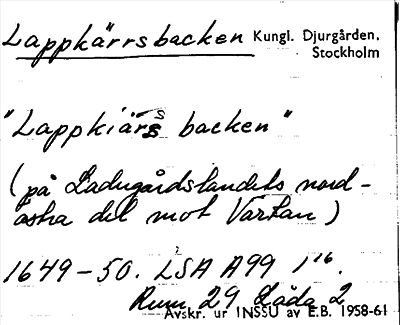 Lappkärrsbacken Kungl. Djurgården,
Stockholm
"Lappkiärs backen"
(på Ladugårdslandets nord-
östra del mot Värtan)
1649-50. LSA A99 1¹⁶.
Rum 29 Låda 2
Avskr. ur INSSU av E.B. 1958-61